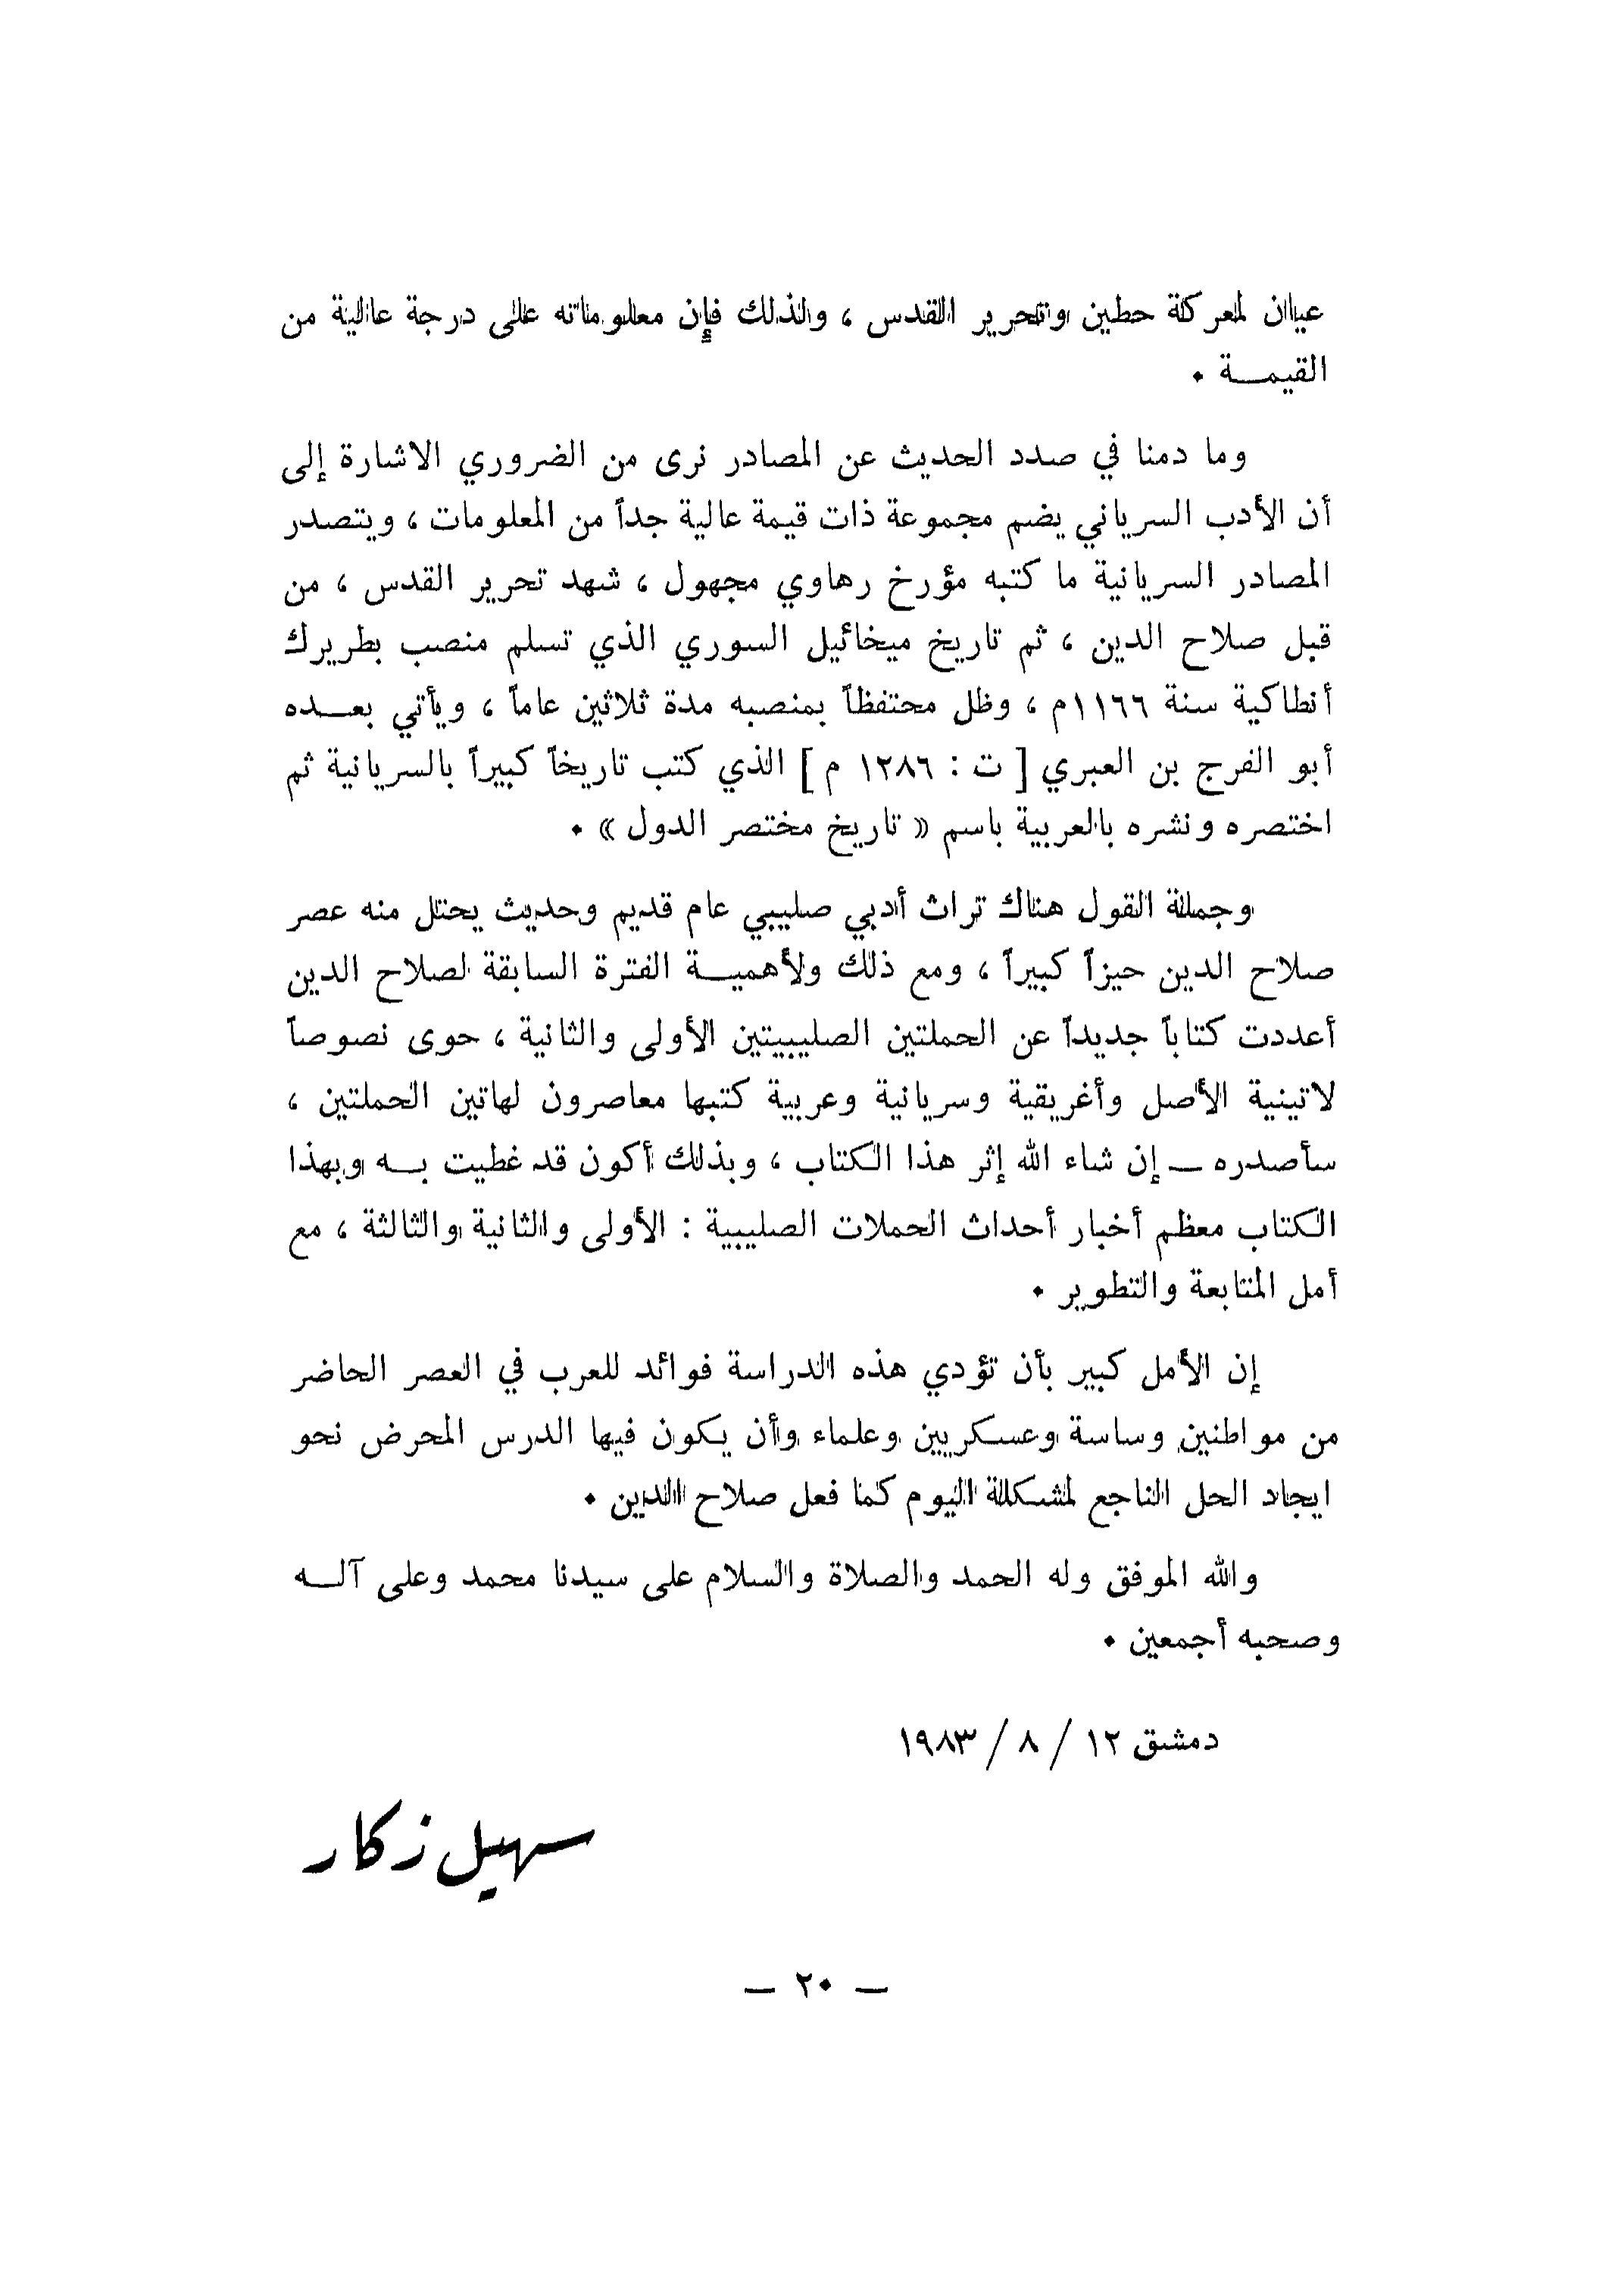 عيان لمعركة حطين وتحرير القدس ، ولذلك فإن معلوماته على درجة عالية من
القيمـــة ٠
وما دمنا في صدد الحديث عن المصادر نرى من الضروري الاشارة إلى
أن الأدب السرياني يضم مجموعة ذات قيمة عالية جداً من المعلومات ، ويتصدر
المصادر السريانية ما كتبه مؤرخ رهاوي مجهول ، شهد تحرير القدس ، من
قبل صلاح الدين ، ثم تاريخ ميخائيل السوري الذي تسلم منصب بطريرك
أنطاكية سنة ١١٦٦م ، وظل محتفظاً بمنصبه مدة ثلاثين عاماً ، ويأتي بعـــده
أبو الفرج بن العبري [ ت : ١٢٨٦ م ] الذي كتب تاريخاً كبيراً بالسريانية ثم
اختصره ونشره بالعربية باسم « تاريخ مختصر الدول » ٠
وجملة القول هناك تراث أدبي صليبي عام قديم وحديث يحتل منه عصر
صلاح الدين حيزاً كبيراً ، ومع ذلك ولأهميـــة الفترة السابقة لصلاح الدين
أعددت كتاباً جديداً عن الحملتين الصليبيتين الأولى والثانية ، حوى نصوصاً
لاتينية الأصل وأغريقية وسريانية وعربية كتبها معاصرون لهاتين الحملتين ،
سأصدره — إن شاء الله إثر هذا الكتاب ، وبذلك أكون قد غطيت بـــه وبهذا
الكتاب معظم أخبار أحداث الحملات الصليبية : الأولى والثانية والثالثة ، مع
أمل المتابعة والتطوير ٠
إن الأمل كبير بأن تؤدي هذه الدراسة فوائد للعرب في العصر الحاضر
من مواطنين وساسة وعسكريين وعلماء وأن يكون فيها الدرس المحرض نحو
ايجاد الحل الناجع لمشكلة اليوم كما فعل صلاح الدين ٠
والله الموفق وله الحمد والصلاة والسلام على سيدنا محمد وعلى آلـــه
وصحبه أجمعين ٠
دمشق ١٢ / ٨ / ١٩٨٣
سهيل زكار
— ٢٠ —